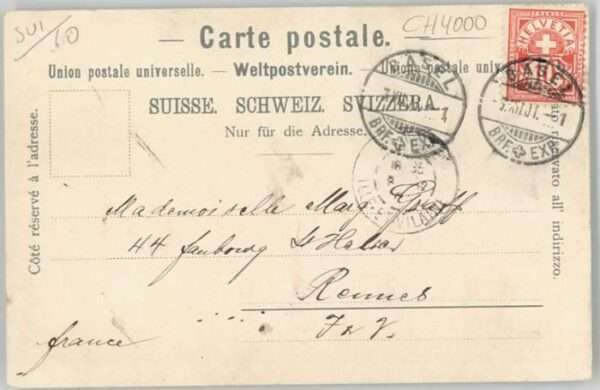 SUI
60
CH4000
Carte postale.
Union postale universelle. — Weltpostverein. — Unione postale univers
SUISSE. SCHWEIZ. SVIZZERA.
Nur für die Adresse.
Côté réservé à l'adresse.
lato riservato all' indirizzo.
HELVETIA
BASEL
BRF. EXP.
BASEL
BRF. EXP.
VILAINE
Mademoiselle
44 faubourg St Helier
Rennes
I & V.
france